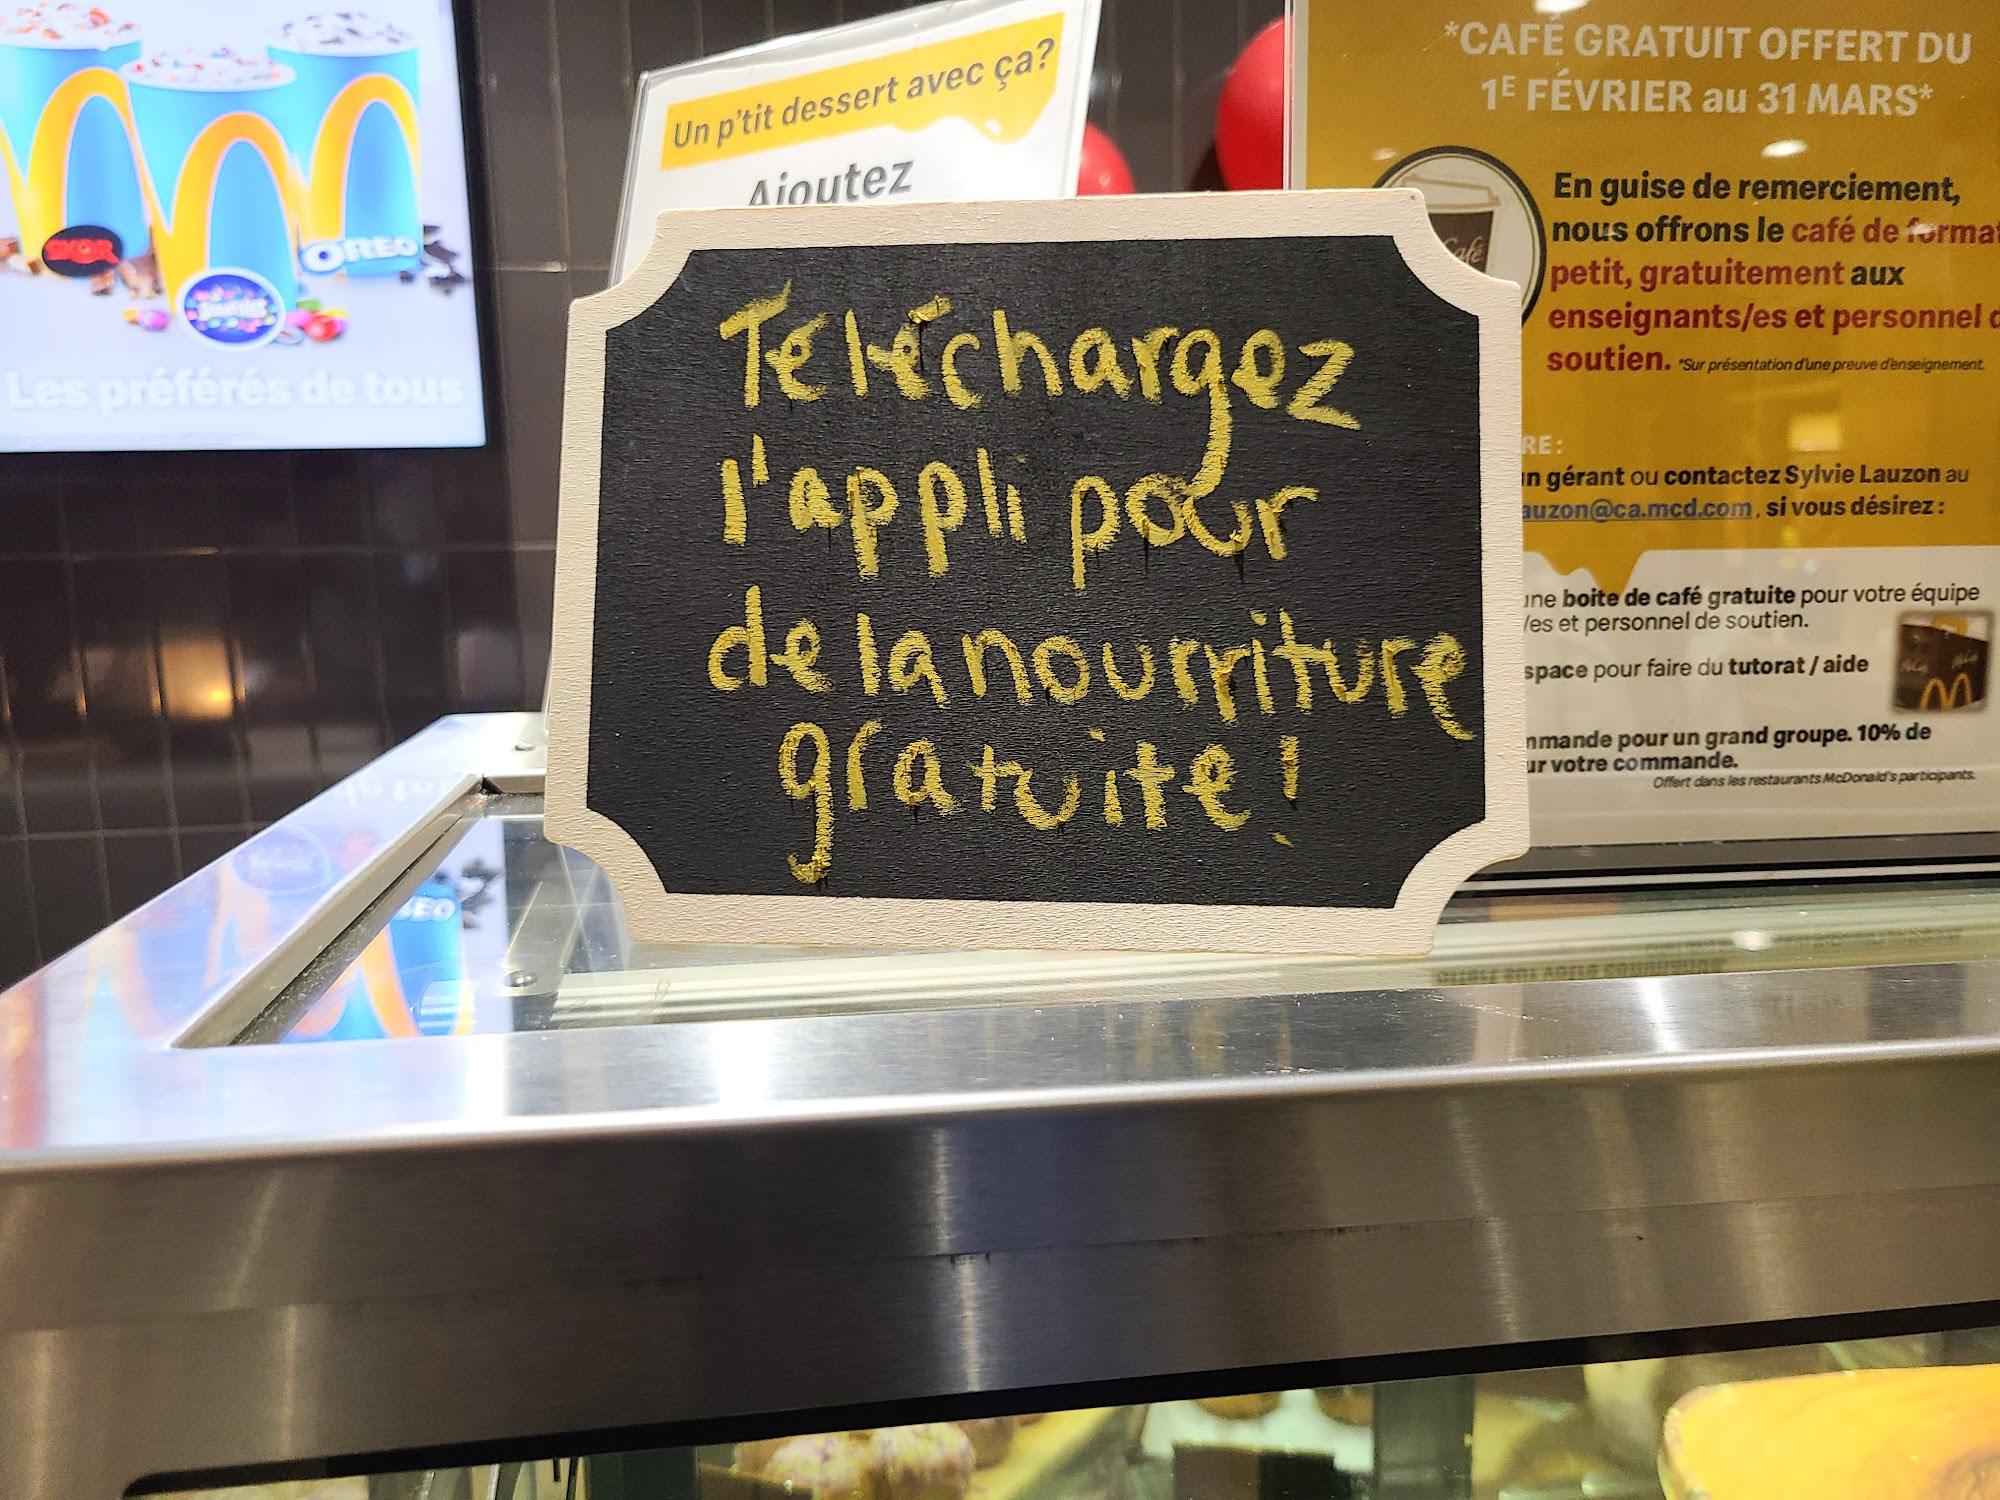 SKOR
OREO
SMARTIES
Les préférés de tous
Un p'tit dessert avec ça?
Ajoutez
Téléchargez
l'appli pour
de la nourriture
gratuite!
*CAFÉ GRATUIT OFFERT DU
1E FÉVRIER au 31 MARS*
En guise de remerciement,
nous offrons le café de format
petit, gratuitement aux
enseignants/es et personnel
soutien. *Sur présentation d'une preuve d'enseignement.
RE:
un gérant ou contactez Sylvie Lauzon au
auzon@ca.mcd.com, si vous désirez :
une boite de café gratuite pour votre équipe
/es et personnel de soutien.
space pour faire du tutorat / aide
mmande pour un grand groupe. 10% de
ur votre commande.
Offert dans les restaurants McDonald's participants.